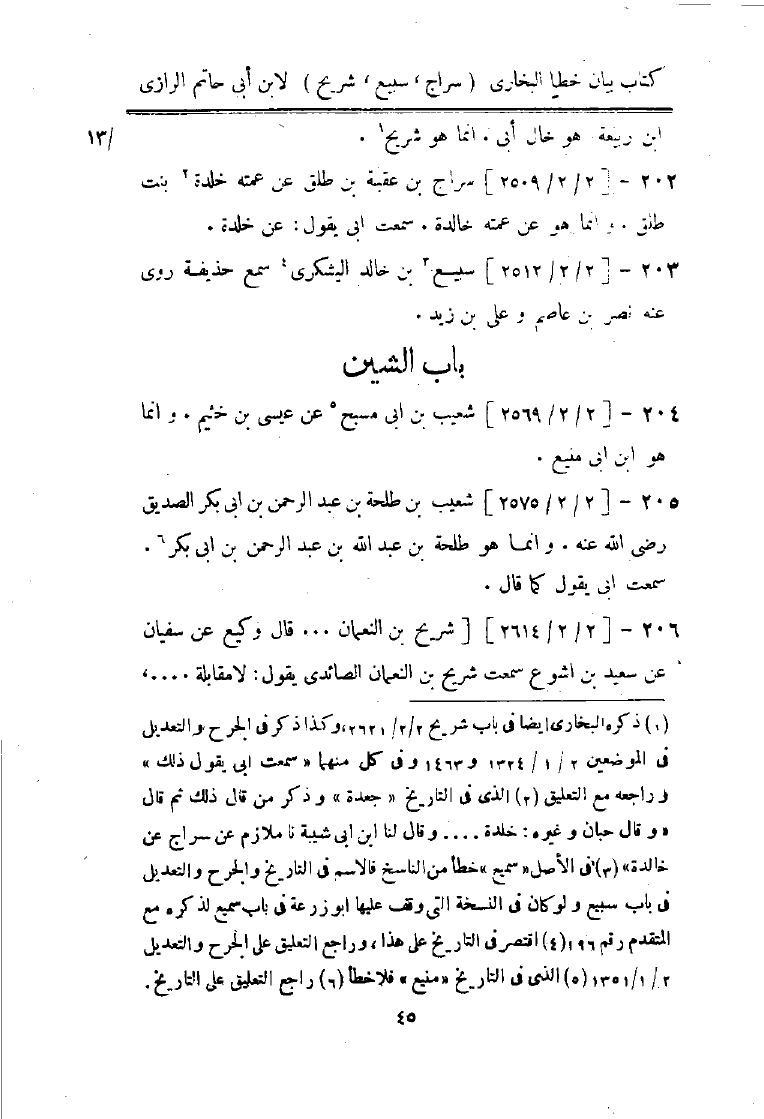 كتاب بيان خطا البخارى ( سراج ، سبيع ، شريح ) لابن أبى حاتم الرازى
ابن ربيعة هو خال أبى . انما هو شريح١ .
١٣/
٢٠٢ – [ ٢/ ٢/ ٢٥٠٩ ] سراج بن عقبة بن طلق عن عمته خلدة٢ بنت
طلق . و انما هو عن عمته خالدة . سمعت ابى يقول : عن خلدة .
٢٠٣ – [ ٢/ ٢/ ٢٥١٢ ] سبيع٣ بن خالد اليشكرى٤ سمع حذيفة روى
عنه نصر بن عاصم و على بن زيد .
باب الشين
٢٠٤ – [ ٢/ ٢/ ٢٥٦٩ ] شعيب بن ابى مسبح٥ عن عيسى بن خثيم . و انما
هو ابن ابى منيع .
٢٠٥ – [ ٢/ ٢/ ٢٥٧٥ ] شعيب بن طلحة بن عبد الرحمن بن ابى بكر الصديق
رضى الله عنه . و انما هو طلحة بن عبد الله بن عبد الرحمن بن ابى بكر٦ .
سمعت ابى يقول كما قال .
٢٠٦ – [ ٢/ ٢/ ٢٦١٤ ] [ شريح بن النعمان ... قال وكيع عن سفيان
عن سعيد بن اشوع سمعت شريح بن النعمان الصائدى يقول : لامقابلة ....،
(١) ذكره البخارى ايضا فى باب شريح ٢/ ٢/ ٢٦٢١، وكذا ذكر فى الجرح والتعديل
فى الموضعين ٢/ ١/ ١٣٢٤ و ١٤٦٣ و فى كل منهما « سمعت ابى يقول ذلك »
و راجعه مع التعليق (٢) الذى فى التاريخ « جعدة » و ذكر من قال ذلك ثم قال
« و قال حبان و غيره : خلدة .... و قال لنا ابن ابى شيبة نا ملازم عن سراج عن
خالدة » (٣) فى الأصل « سميع » خطأ من الناسخ فالاسم فى التاريخ و الجرح و التعديل
فى باب سبيع و لوكان فى النسخة التى وقف عليها ابو زرعة فى باب سميع لذكره مع
المتقدم رقم ١٩٦ (٤) اقتصر فى التاريخ على هذا ، و راجع التعليق على الجرح و التعديل
٢/ ١/ ١٣٥١ (٥) الذى فى التاريخ « منيع » فلاخطأ (٦) راجع التعليق على التاريخ .
٤٥